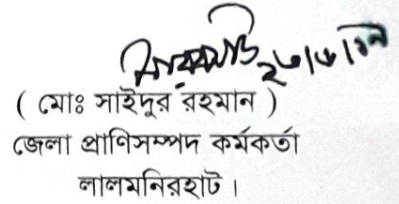 ( মোঃ সাইদুর রহমান )
জেলা প্রাণিসম্পদ কর্মকর্তা
লালমনিরহাট।